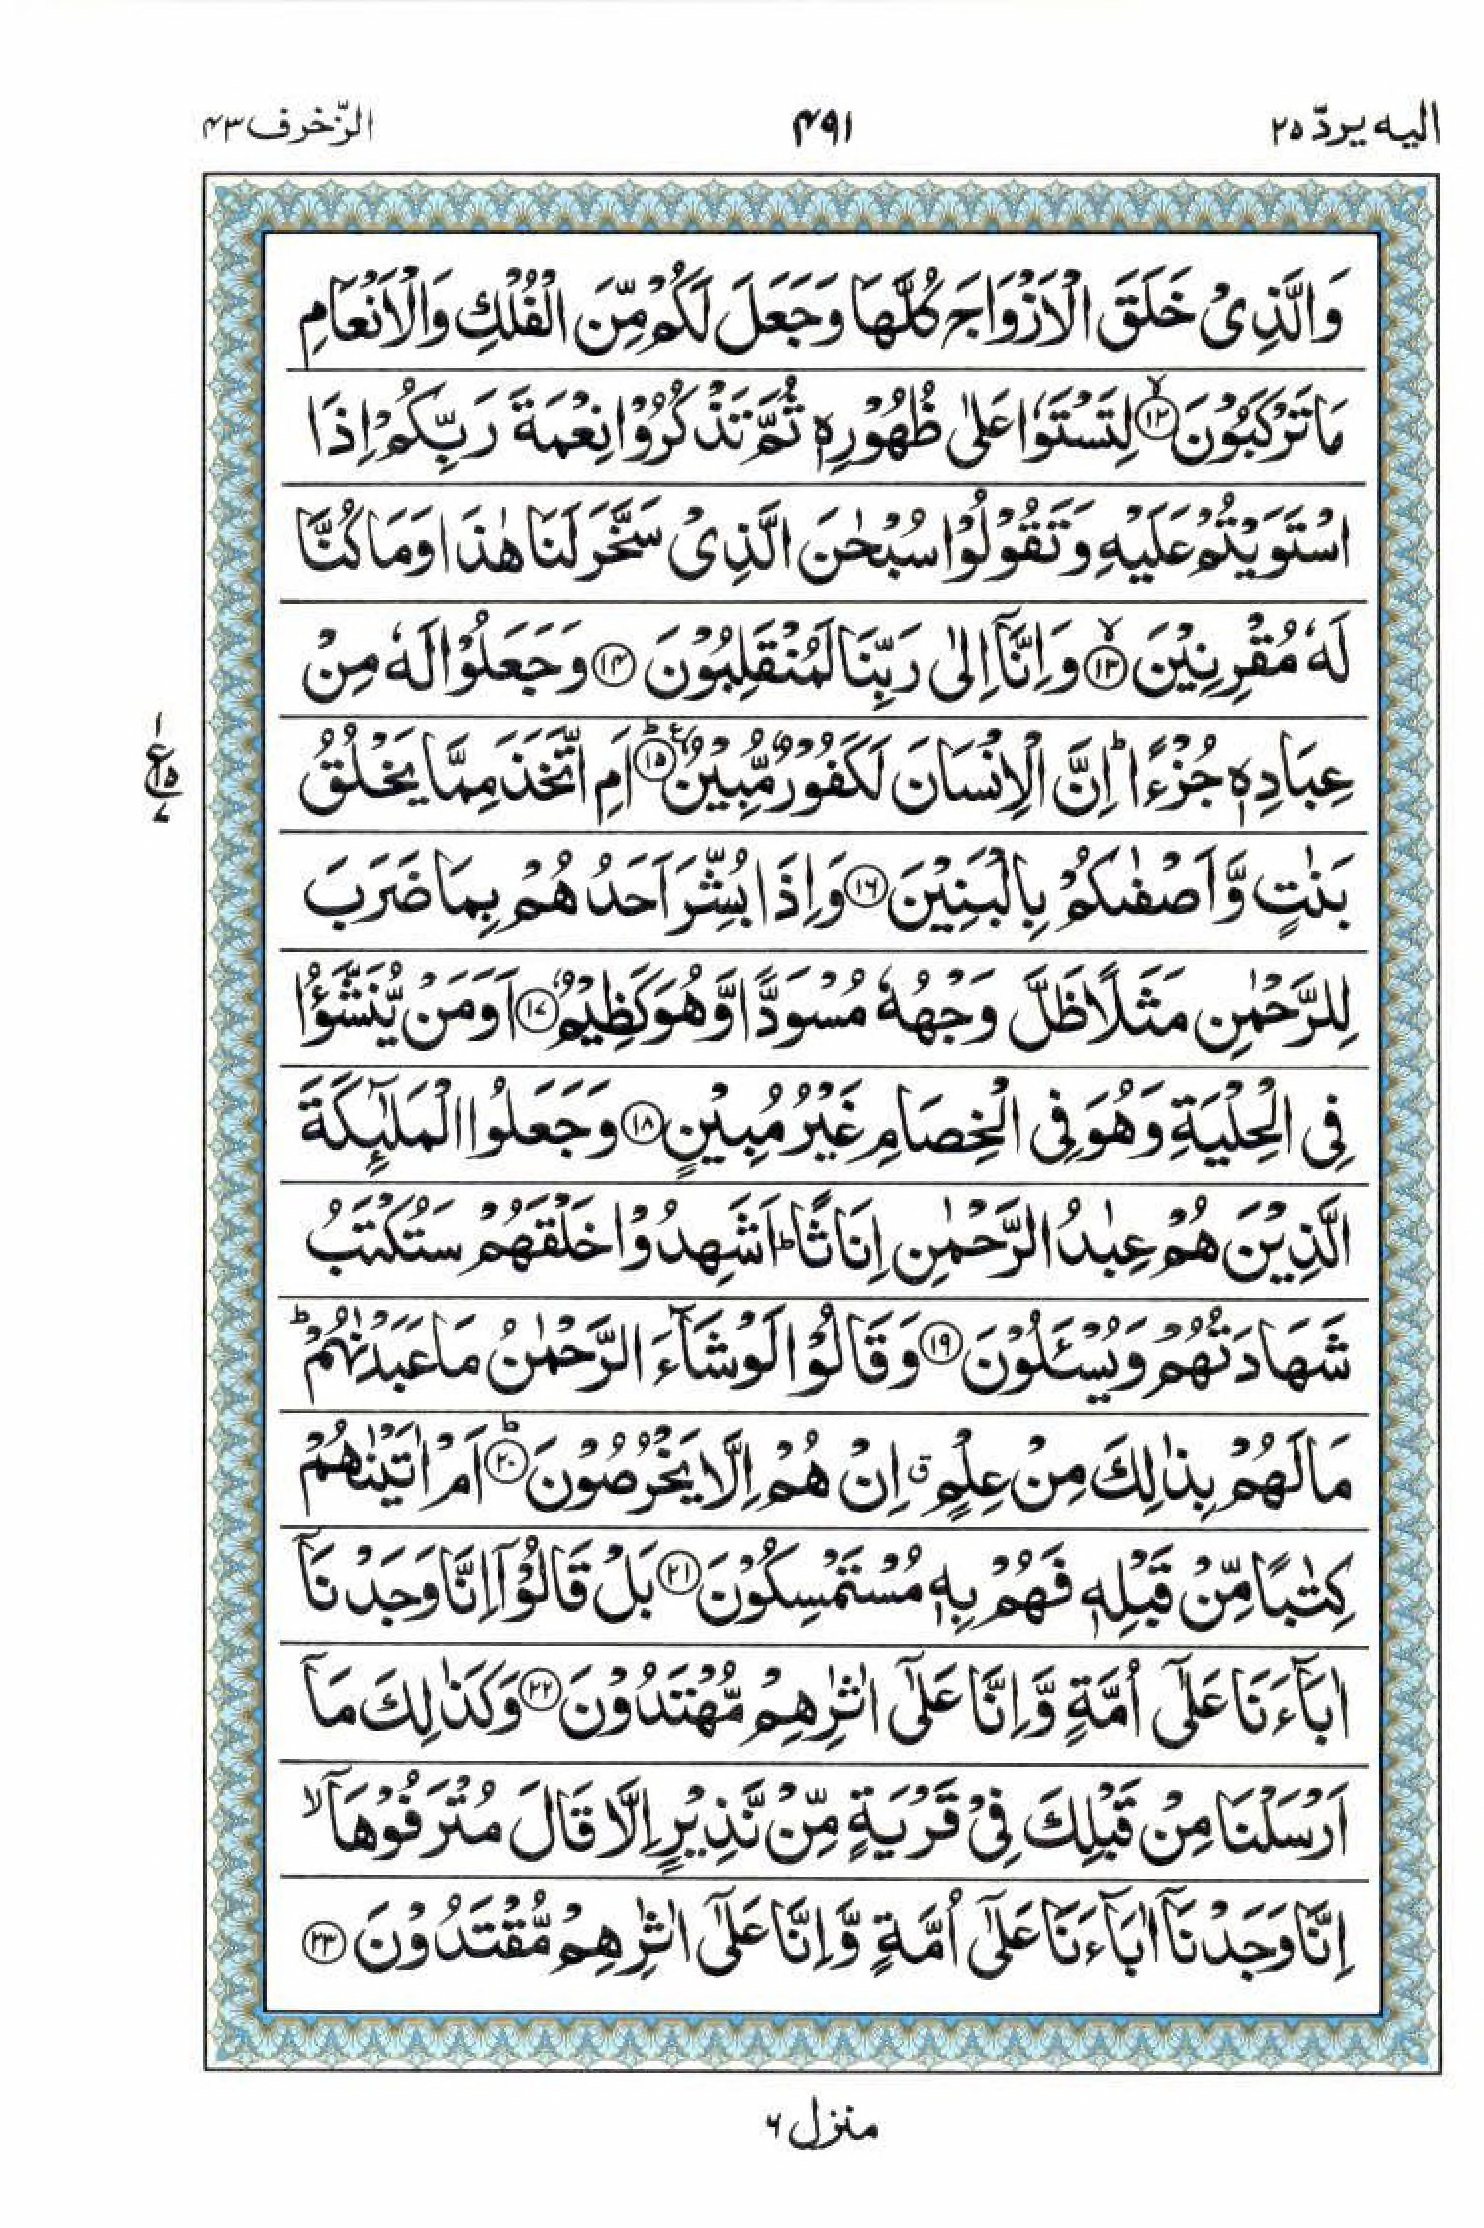 اليه يردّ ۲۵
۴۹۱
الزّخرف ۴۳
وَالَّذِىۡ خَلَقَ الۡاَزۡوَاجَ كُلَّهَا وَجَعَلَ لَكُمۡ مِّنَ الۡفُلۡكِ وَالۡاَنۡعَامِ
مَا تَرۡكَبُوۡنَۙ‏ ﴿۱۲﴾ لِتَسۡتَوٗا عَلٰى ظُهُوۡرِهٖ ثُمَّ تَذۡكُرُوۡا نِعۡمَةَ رَبِّكُمۡ اِذَا
اسۡتَوَيۡتُمۡ عَلَيۡهِ وَتَقُوۡلُوۡا سُبۡحٰنَ الَّذِىۡ سَخَّرَ لَنَا هٰذَا وَمَا كُنَّا
لَهٗ مُقۡرِنِيۡنَۙ‏ ﴿۱۳﴾ وَاِنَّاۤ اِلٰى رَبِّنَا لَمُنۡقَلِبُوۡنَ‏ ﴿۱۴﴾ وَجَعَلُوۡا لَهٗ مِنۡ
عِبَادِهٖ جُزۡءًا ؕ اِنَّ الۡاِنۡسَانَ لَـكَفُوۡرٌ مُّبِيۡنٌ ؕ‏ ﴿۱۵﴾ اَمِ اتَّخَذَ مِمَّا يَخۡلُقُ
بَنٰتٍ وَّاَصۡفٰٮكُمۡ بِالۡبَنِيۡنَ‏ ﴿۱۶﴾ وَاِذَا بُشِّرَ اَحَدُهُمۡ بِمَا ضَرَبَ
لِلرَّحۡمٰنِ مَثَلًا ظَلَّ وَجۡهُهٗ مُسۡوَدًّا وَّهُوَ كَظِيۡمٌ‏ ﴿۱۷﴾ اَوَمَنۡ يُّنَشَّؤُا
فِى الۡحِلۡيَةِ وَهُوَ فِى الۡخِصَامِ غَيۡرُ مُبِيۡنٍ‏ ﴿۱۸﴾ وَجَعَلُوا الۡمَلٰٓٮِٕكَةَ
الَّذِيۡنَ هُمۡ عِبٰدُ الرَّحۡمٰنِ اِنَاثًا ؕ اَشَهِدُوۡا خَلۡقَهُمۡ سَتُكۡتَبُ
شَهَادَتُهُمۡ وَيُسۡـَٔــلُوۡنَ‏ ﴿۱۹﴾ وَقَالُوۡا لَوۡ شَآءَ الرَّحۡمٰنُ مَا عَبَدۡنٰهُمۡؕ
مَا لَهُمۡ بِذٰلِكَ مِنۡ عِلۡمٍ‌ۗ اِنۡ هُمۡ اِلَّا يَخۡرُصُوۡنَؕ‏ ﴿۲۰﴾ اَمۡ اٰتَيۡنٰهُمۡ
كِتٰبًا مِّنۡ قَبۡلِهٖ فَهُمۡ بِهٖ مُسۡتَمۡسِكُوۡنَ‏ ﴿۲۱﴾ بَلۡ قَالُوۡۤا اِنَّا وَجَدۡنَاۤ
اٰبَآءَنَا عَلٰٓى اُمَّةٍ وَّاِنَّا عَلٰٓى اٰثٰرِهِمۡ مُّهۡتَدُوۡنَ‏ ﴿۲۲﴾ وَكَذٰلِكَ مَاۤ
اَرۡسَلۡنَا مِنۡ قَبۡلِكَ فِىۡ قَرۡيَةٍ مِّنۡ نَّذِيۡرٍ اِلَّا قَالَ مُتۡرَفُوۡهَاۤ ۙ
اِنَّا وَجَدۡنَاۤ اٰبَآءَنَا عَلٰٓى اُمَّةٍ وَّاِنَّا عَلٰٓى اٰثٰرِهِمۡ مُّقۡتَدُوۡنَ‏ ﴿۲۳﴾
۱
ع ۱۵
۷
منزل ۶